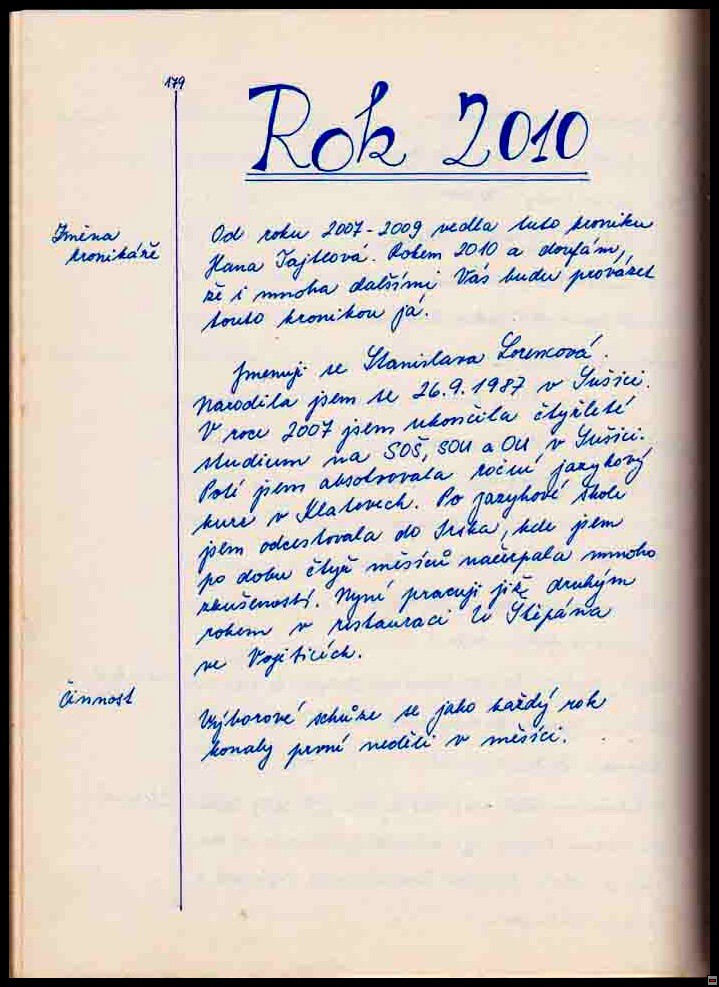 179
Rok 2010
Změna
kronikáře
Od roku 2007-2009 vedla tuto kroniku
Hana Tajtlová. Rokem 2010 a doufám,
že i mnoha dalšími Vás budu provázet
touto kronikou já.
Jmenuji se Stanislava Lorencová.
Narodila jsem se 26.9.1987 v Sušici.
V roce 2007 jsem ukončila čtyřleté
studium na SOŠ, SOU a OU v Sušici.
Poté jsem absolvovala roční jazykový
kurz v Klatovech. Po jazykové škole
jsem odcestovala do Irska, kde jsem
po dobu čtyř měsíců načerpala mnoho
zkušeností. Nyní pracuji již druhým
rokem v restauraci U Štěpána
ve Vojticích.
Činnost
Výborové schůze se jako každý rok
konaly první neděli v měsíci.